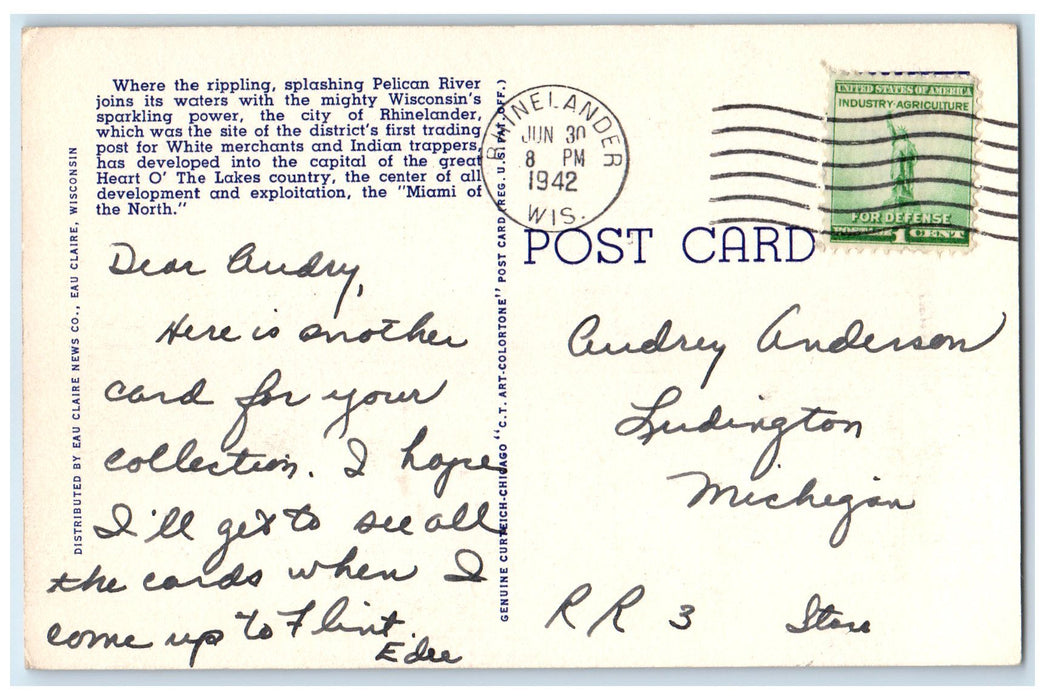 Where the rippling, splashing Pelican River
joins its waters with the mighty Wisconsin's
sparkling power, the city of Rhinelander,
which was the site of the district's first trading
post for White merchants and Indian trappers,
has developed into the capital of the great
Heart O' The Lakes country, the center of all
development and exploitation, the "Miami of
the North."
DISTRIBUTED BY EAU CLAIRE NEWS CO., EAU CLAIRE, WISCONSIN
Dear Audry,
Here is another
card for your
collection. I hope
I'll get to see all
the cards when I
come up to Flint.
Edee
GENUINE CURTEICH-CHICAGO "C.T. ART-COLORTONE" POST CARD (REG. U.S. PAT. OFF.)
RHINELANDER
JUN 30
8 PM
1942
WIS.
UNITED STATES OF AMERICA
INDUSTRY·AGRICULTURE
FOR DEFENSE
POSTAGE 1 CENT
POST CARD
Audrey Anderson
Ludington
Michigan
RR 3 Store